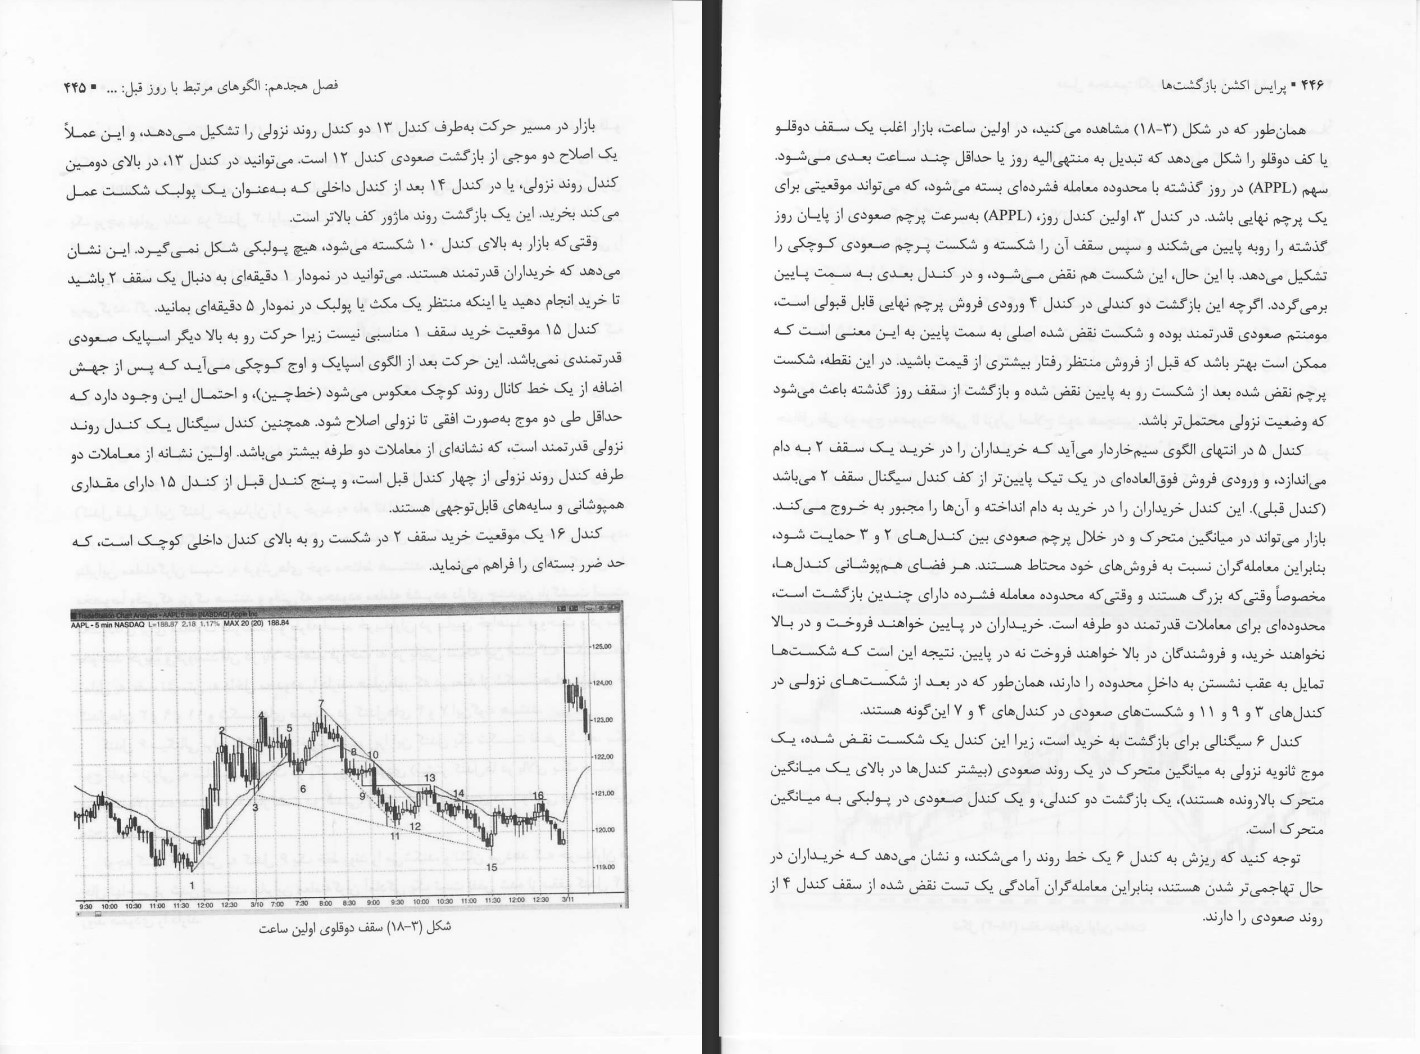 فصل هجدهم: الگوهای مرتبط با روز قبل: ... ▪ ۴۴۵
بازار در مسیر حرکت به‌طرف کندل ۱۳ دو کندل روند نزولی را تشکیل می‌دهد، و این عملاً
یک اصلاح دو موجی از بازگشت صعودی کندل ۱۲ است. می‌توانید در کندل ۱۳، در بالای دومین
کندل روند نزولی، یا در کندل ۱۴ بعد از کندل داخلی که به‌عنوان یک پولبک شکست عمل
می‌کند بخرید. این یک بازگشت روند ماژور کف بالاتر است.
وقتی‌که بازار به بالای کندل ۱۰ شکسته می‌شود، هیچ پولبکی شکل نمی‌گیرد. این نشان
می‌دهد که خریداران قدرتمند هستند. می‌توانید در نمودار ۱ دقیقه‌ای به دنبال یک سقف ۲ باشید
تا خرید انجام دهید یا اینکه منتظر یک مکث یا پولبک در نمودار ۵ دقیقه‌ای بمانید.
کندل ۱۵ موقعیت خرید سقف ۱ مناسبی نیست زیرا حرکت رو به بالا دیگر اسپایک صعودی
قدرتمندی نمی‌باشد. این حرکت بعد از الگوی اسپایک و اوج کوچکی می‌آید که پس از جهش
اضافه از یک خط کانال روند کوچک معکوس می‌شود (خط‌چین)، و احتمال این وجود دارد که
حداقل طی دو موج به‌صورت افقی تا نزولی اصلاح شود. همچنین کندل سیگنال یک کندل روند
نزولی قدرتمند است، که نشانه‌ای از معاملات دو طرفه بیشتر می‌باشد. اولین نشانه از معاملات دو
طرفه کندل روند نزولی از چهار کندل قبل است، و پنج کندل قبل از کندل ۱۵ دارای مقداری
همپوشانی و سایه‌های قابل‌توجهی هستند.
کندل ۱۶ یک موقعیت خرید سقف ۲ در شکست رو به بالای کندل داخلی کوچک است، که
حد ضرر بسته‌ای را فراهم می‌نماید.
AAPL - 5 min NASDAQ L=188.87 2.18 1.17% MAX 20 (20) 188.84
125.00
124.00
123.00
122.00
121.00
120.00
119.00
1
2
3
4
5
6
7
8
9
10
11
12
13
14
15
16
9:30 10:00 10:30 11:00 11:30 12:00 12:30 3/10 7:00 7:30 8:00 8:30 9:00 9:30 10:00 10:30 11:00 11:30 12:00 12:30 3/11
شکل (۳-۱۸) سقف دوقلوی اولین ساعت
۴۴۶ ▪ پرایس اکشن بازگشت‌ها
همان‌طور که در شکل (۳-۱۸) مشاهده می‌کنید، در اولین ساعت، بازار اغلب یک سقف دوقلو
یا کف دوقلو را شکل می‌دهد که تبدیل به منتهی‌الیه روز یا حداقل چند ساعت بعدی می‌شود.
سهم (APPL) در روز گذشته با محدوده معامله فشرده‌ای بسته می‌شود، که می‌تواند موقعیتی برای
یک پرچم نهایی باشد. در کندل ۳، اولین کندل روز، (APPL) به‌سرعت پرچم صعودی از پایان روز
گذشته را روبه پایین می‌شکند و سپس سقف آن را شکسته و شکست پرچم صعودی کوچکی را
تشکیل می‌دهد. با این حال، این شکست هم نقض می‌شود، و در کندل بعدی به سمت پایین
برمی‌گردد. اگرچه این بازگشت دو کندلی در کندل ۴ ورودی فروش پرچم نهایی قابل قبولی است،
مومنتم صعودی قدرتمند بوده و شکست نقض شده اصلی به سمت پایین به این معنی است که
ممکن است بهتر باشد که قبل از فروش منتظر رفتار بیشتری از قیمت باشید. در این نقطه، شکست
پرچم نقض شده بعد از شکست رو به پایین نقض شده و بازگشت از سقف روز گذشته باعث می‌شود
که وضعیت نزولی محتمل‌تر باشد.
کندل ۵ در انتهای الگوی سیم‌خاردار می‌آید که خریداران را در خرید یک سقف ۲ به دام
می‌اندازد، و ورودی فروش فوق‌العاده‌ای در یک تیک پایین‌تر از کف کندل سیگنال سقف ۲ می‌باشد
(کندل قبلی). این کندل خریداران را در خرید به دام انداخته و آن‌ها را مجبور به خروج می‌کند.
بازار می‌تواند در میانگین متحرک و در خلال پرچم صعودی بین کندل‌های ۲ و ۳ حمایت شود،
بنابراین معامله‌گران نسبت به فروش‌های خود محتاط هستند. هر فضای هم‌پوشانی کندل‌ها،
مخصوصاً وقتی‌که بزرگ هستند و وقتی‌که محدوده معامله فشرده دارای چندین بازگشت است،
محدوده‌ای برای معاملات قدرتمند دو طرفه است. خریداران در پایین خواهند فروخت و در بالا
نخواهند خرید، و فروشندگان در بالا خواهند فروخت نه در پایین. نتیجه این است که شکست‌ها
تمایل به عقب نشستن به داخل محدوده را دارند، همان‌طور که در بعد از شکست‌های نزولی در
کندل‌های ۳ و ۹ و ۱۱ و شکست‌های صعودی در کندل‌های ۴ و ۷ این‌گونه هستند.
کندل ۶ سیگنالی برای بازگشت به خرید است، زیرا این کندل یک شکست نقض شده، یک
موج ثانویه نزولی به میانگین متحرک در یک روند صعودی (بیشتر کندل‌ها در بالای یک میانگین
متحرک بالارونده هستند)، یک بازگشت دو کندلی، و یک کندل صعودی در پولبکی به میانگین
متحرک است.
توجه کنید که ریزش به کندل ۶ یک خط روند را می‌شکند، و نشان می‌دهد که خریداران در
حال تهاجمی‌تر شدن هستند، بنابراین معامله‌گران آمادگی یک تست نقض شده از سقف کندل ۴ از
روند صعودی را دارند.